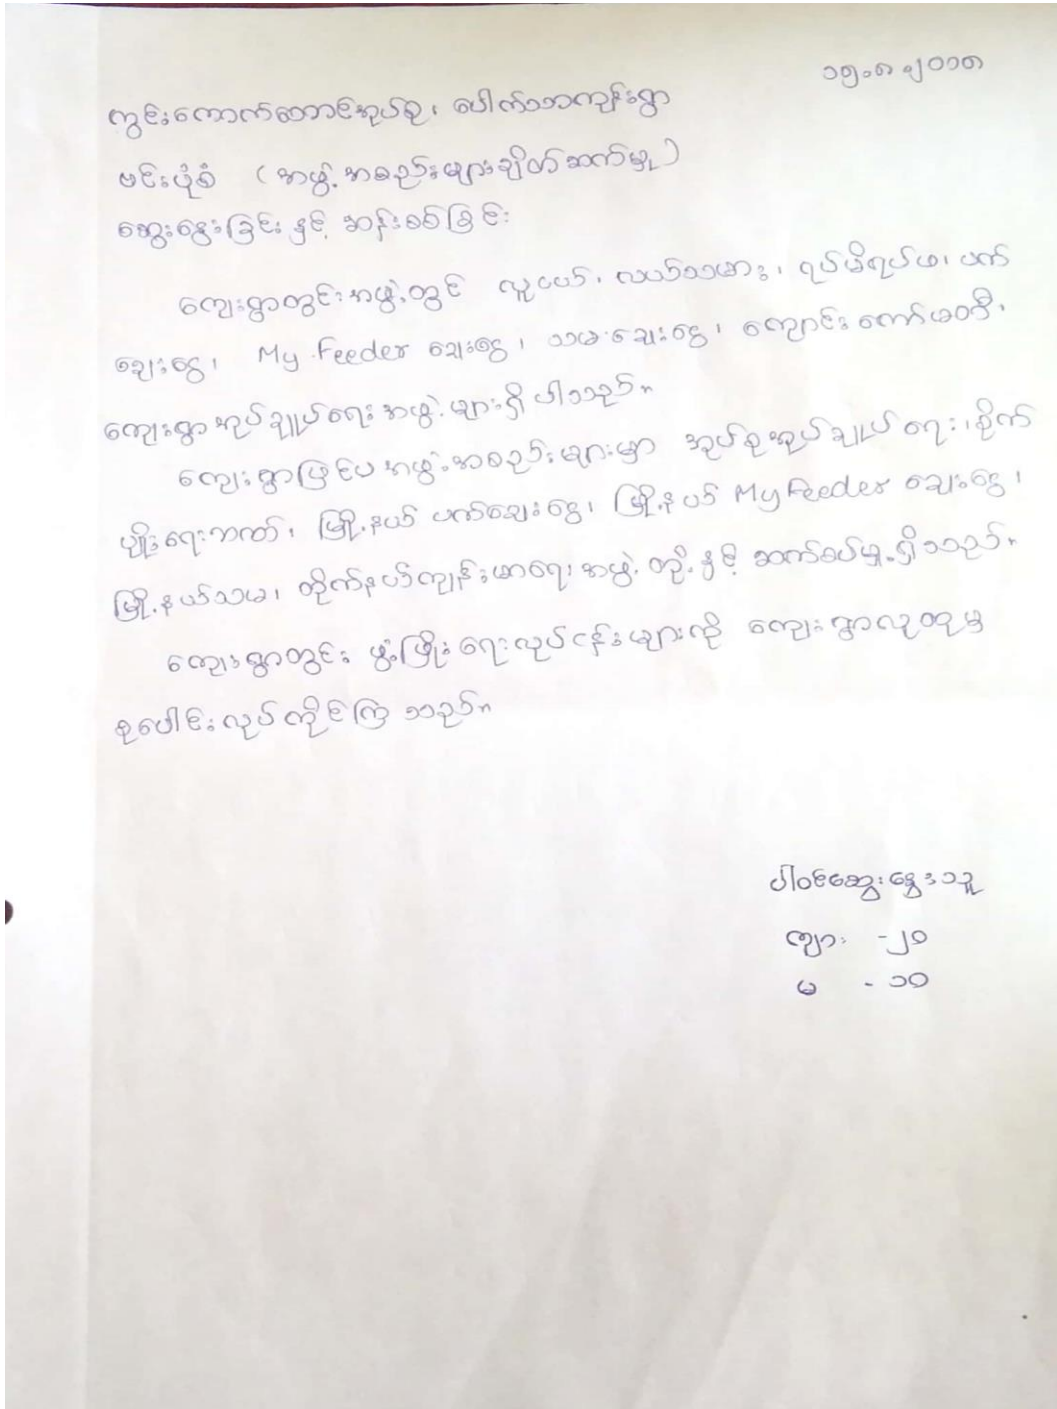 ၁၅.၈.၂၀၁၈
ကွင်းကောက်ဆောင်အုပ်စု၊ ပေါက်သာကျွန်းရွာ
ဗင်းပုံစံ (အဖွဲ့အစည်းများချိတ်ဆက်မှု)
ဆွေးနွေးခြင်းနှင့် ဆန်းစစ်ခြင်း
ကျေးရွာတွင်းအဖွဲ့တွင် လူငယ်၊ လယ်သမား၊ ရပ်မိရပ်ဖ၊ ပက်
ချေးငွေ၊ My Feeder ချေးငွေ၊ သမချေးငွေ၊ ကျောင်းကော်မတီ၊
ကျေးရွာအုပ်ချုပ်ရေးအဖွဲ့များရှိပါသည်။
ကျေးရွာပြင်ပအဖွဲ့အစည်းများမှာ အုပ်စုအုပ်ချုပ်ရေး၊ စိုက်
ပျိုးရေးဘဏ်၊ မြို့နယ် ပက်ချေးငွေ၊ မြို့နယ် My Feeder ချေးငွေ၊
မြို့နယ်သမ၊ တိုက်နယ်ကျန်းမာရေးအဖွဲ့ တို့နှင့် ဆက်စပ်မှု့ရှိသည်။
ကျေးရွာတွင်း ဖွံ့ဖြိုးရေးလုပ်ငန်းများကို ကျေးရွာလူထုမှ
စုပေါင်းလုပ်ကိုင်ကြသည်။
ပါဝင်ဆွေးနွေးသူ
ကျား - ၂၀
မ - ၁၀